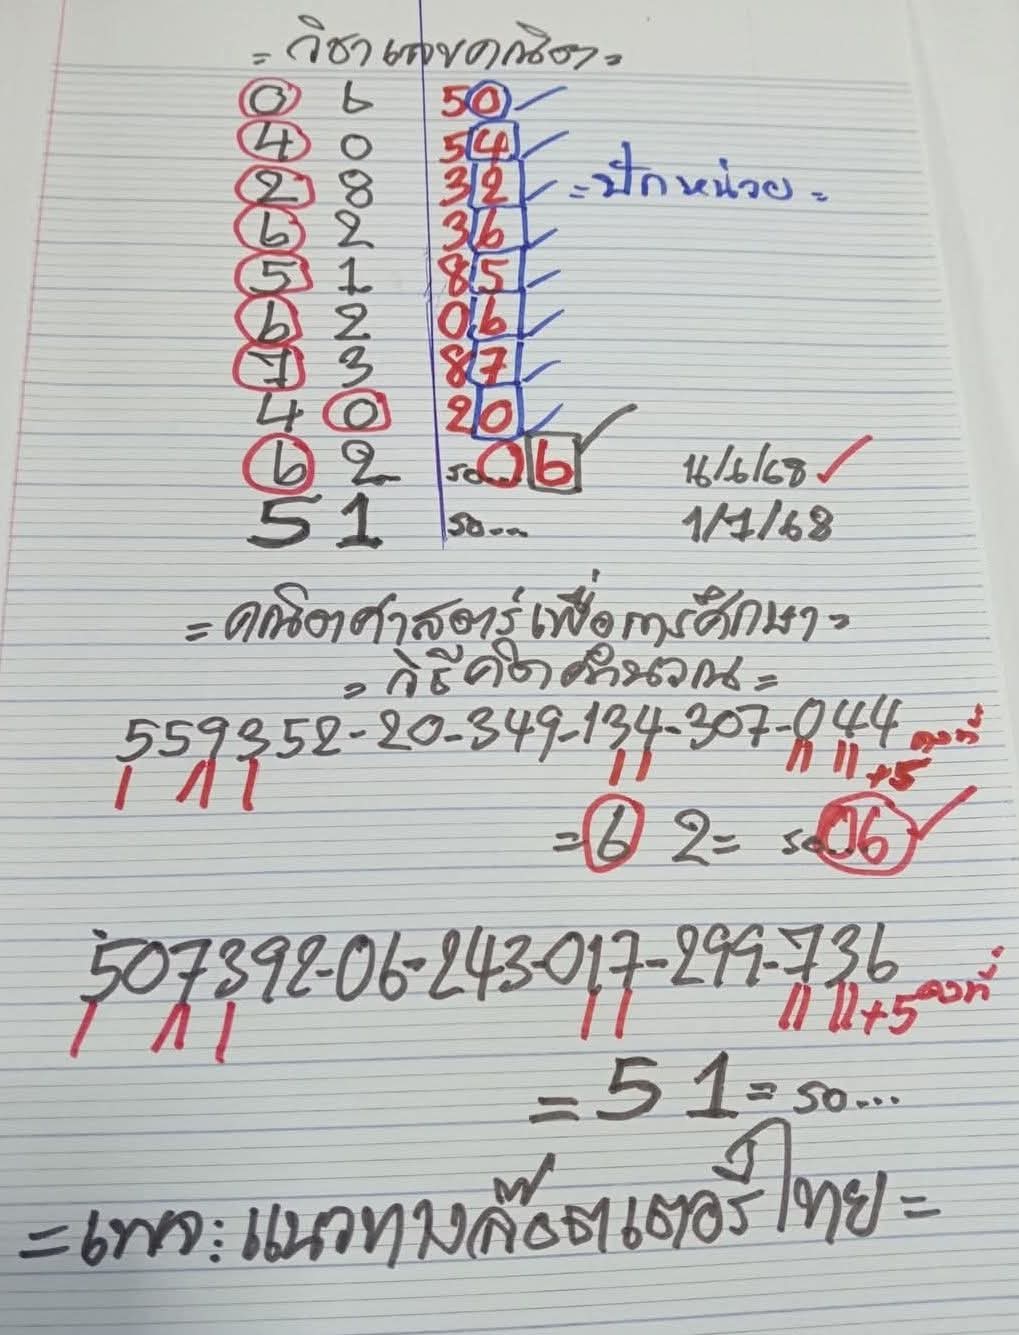 = วิชาเลขคณิต =
0 6 50
4 0 54
2 8 32 = ปักหน่วย =
6 2 36
5 1 85
6 2 06
7 3 87
4 0 20
6 2 รอ... 06 16/6/68
5 1 รอ... 1/7/68
= คณิตศาสตร์เพื่อการศึกษา =
= วิธีคิดคำนวณ =
559352-20-349-134-307-044
+5 คงที่
= 6 2 = รอ... 06
507392-06-243-017-299-736
+5 คงที่
= 5 1 = รอ...
= เพจ: แนวทางล๊อตเตอรี่ไทย =